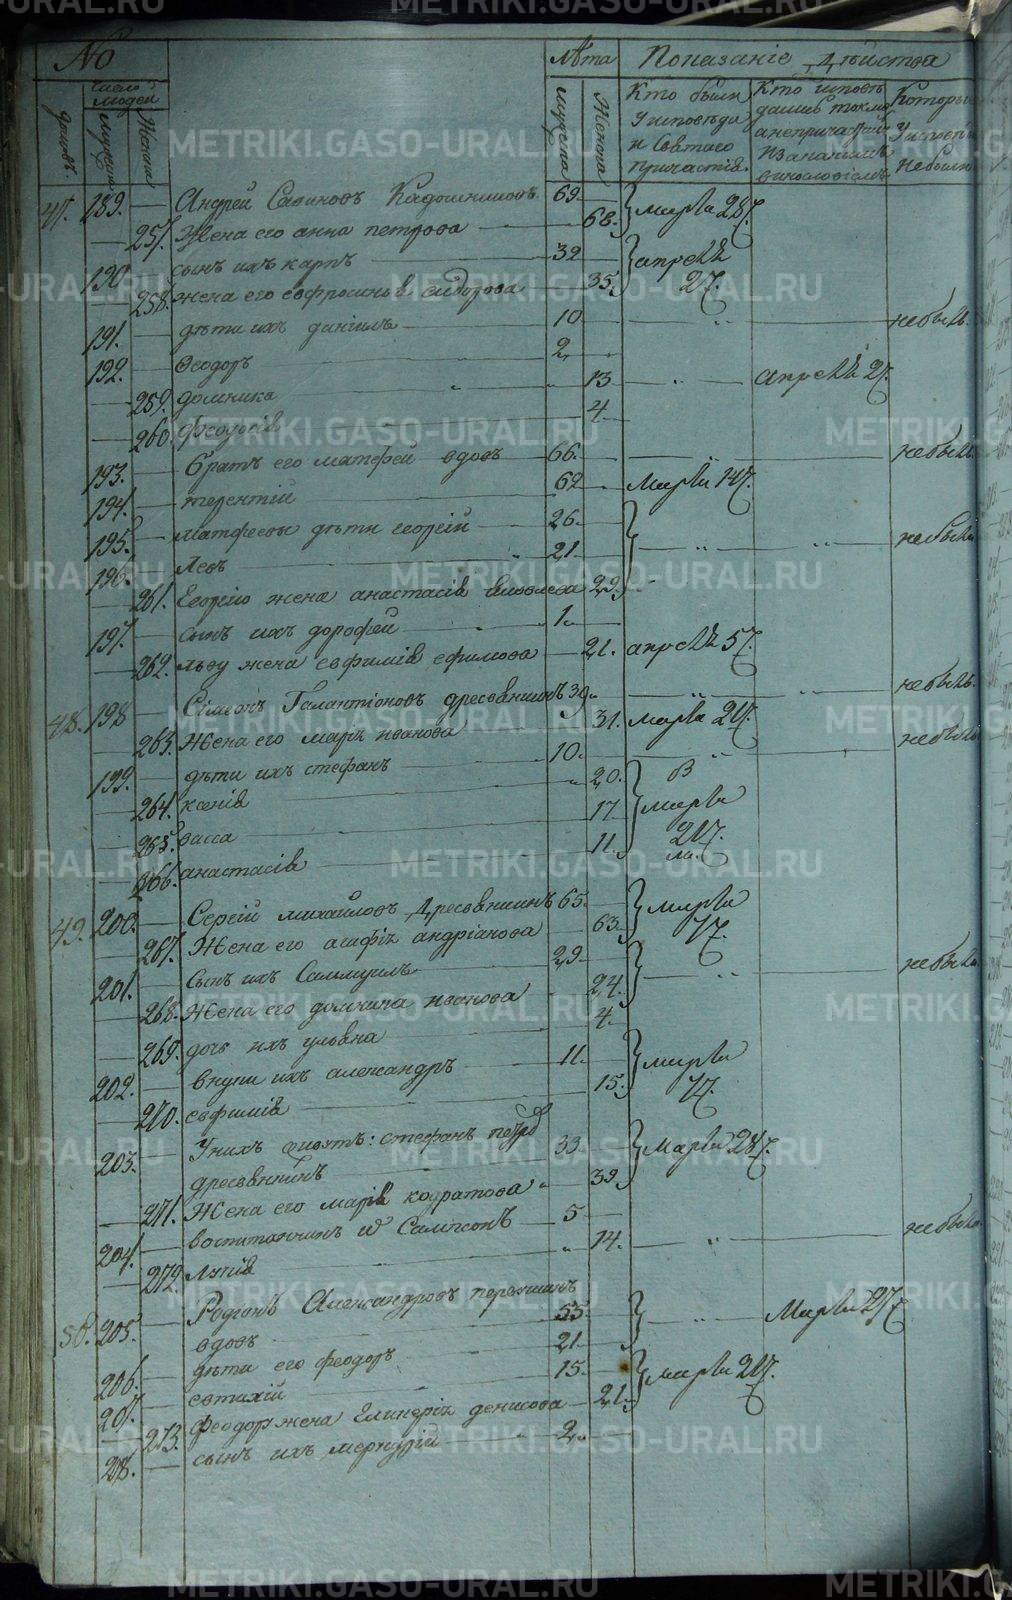 №
Лѣта
Показаніе дѣйства
Число людей
Дворовъ.
Мужеска
Женска
Мужеска
Женска
Кто были у исповѣди и святаго причастія.
Кто исповѣ дались токмо а непричастились
Которые у исповѣди не были
47. 189. — Андрей Савиновъ Кадошниковъ 69 — } марта 28.
— 257. Жена его анна петрова — 68.
190. — сынъ ихъ карпъ — 39 — } апрелѧ 27.
— 258. жена его евфросиньѧ сидорова — 35.
191. — дѣти ихъ данiилъ — 10 — небылъ.
192. — Феодоръ — 2
— 259. домника — 13 — апрелѧ 2.
— 260. феодосіѧ — 4
193. — братъ его матфей вдовъ — 66. — небылъ.
194. — терентій — 62 — марта 14.
195. — матфеевы дѣти георгій — 26. — небыли
196. — левъ — 21.
— 261. Георгію жена анастасіѧ 29
197. — сынъ ихъ дорофей — 1.
— 262. льву жена евфиміѧ ефимова — 21. апрелѧ 5.
48. 198 — Сімеонъ Галактіоновъ дресвѧнинъ 39 — небылъ.
— 263. Жена его маріѧ иванова — 31. марта 21.
199. — дѣти ихъ стефанъ — 10. — небылъ
— 264. ксеніѧ — 20. } марта 21.
— 265. васса — 17
— 266. анастасіѧ — 11.
49. 200. — Сергій михайловъ Дресвѧнинъ 65. — } марта 7.
— 267. Жена его агафіѧ андріанова — 63.
201. — Сынъ ихъ Самуилъ — 29 — } небыли
— 268. Жена его домника иванова — 24.
— 269. дочь ихъ ульѧна — 4.
202. — внуки ихъ александръ — 11. — } марта 7.
— 270. евфиміѧ — 15.
203. — У нихъ живетъ: стефанъ петровъ 33 — } Марта 28.
дресвѧнинъ
— 271. Жена его маріѧ кодратова — 39.
204. — воспитанникъ Сампсонъ — 5 —
— 272. Лукіѧ — 14. — небыла
50. 205. — Родіонъ Александровъ перевѧнинъ
вдовъ 55. — Марта 27
206. — дѣти его феодоръ — 21.
207. — евтихій — 15. } марта 21.
— 273. феодоржена Гликеріѧ денисова — 21.
208. — сынъ ихъ меркурій — 2.
METRIKI.GASO-URAL.RU